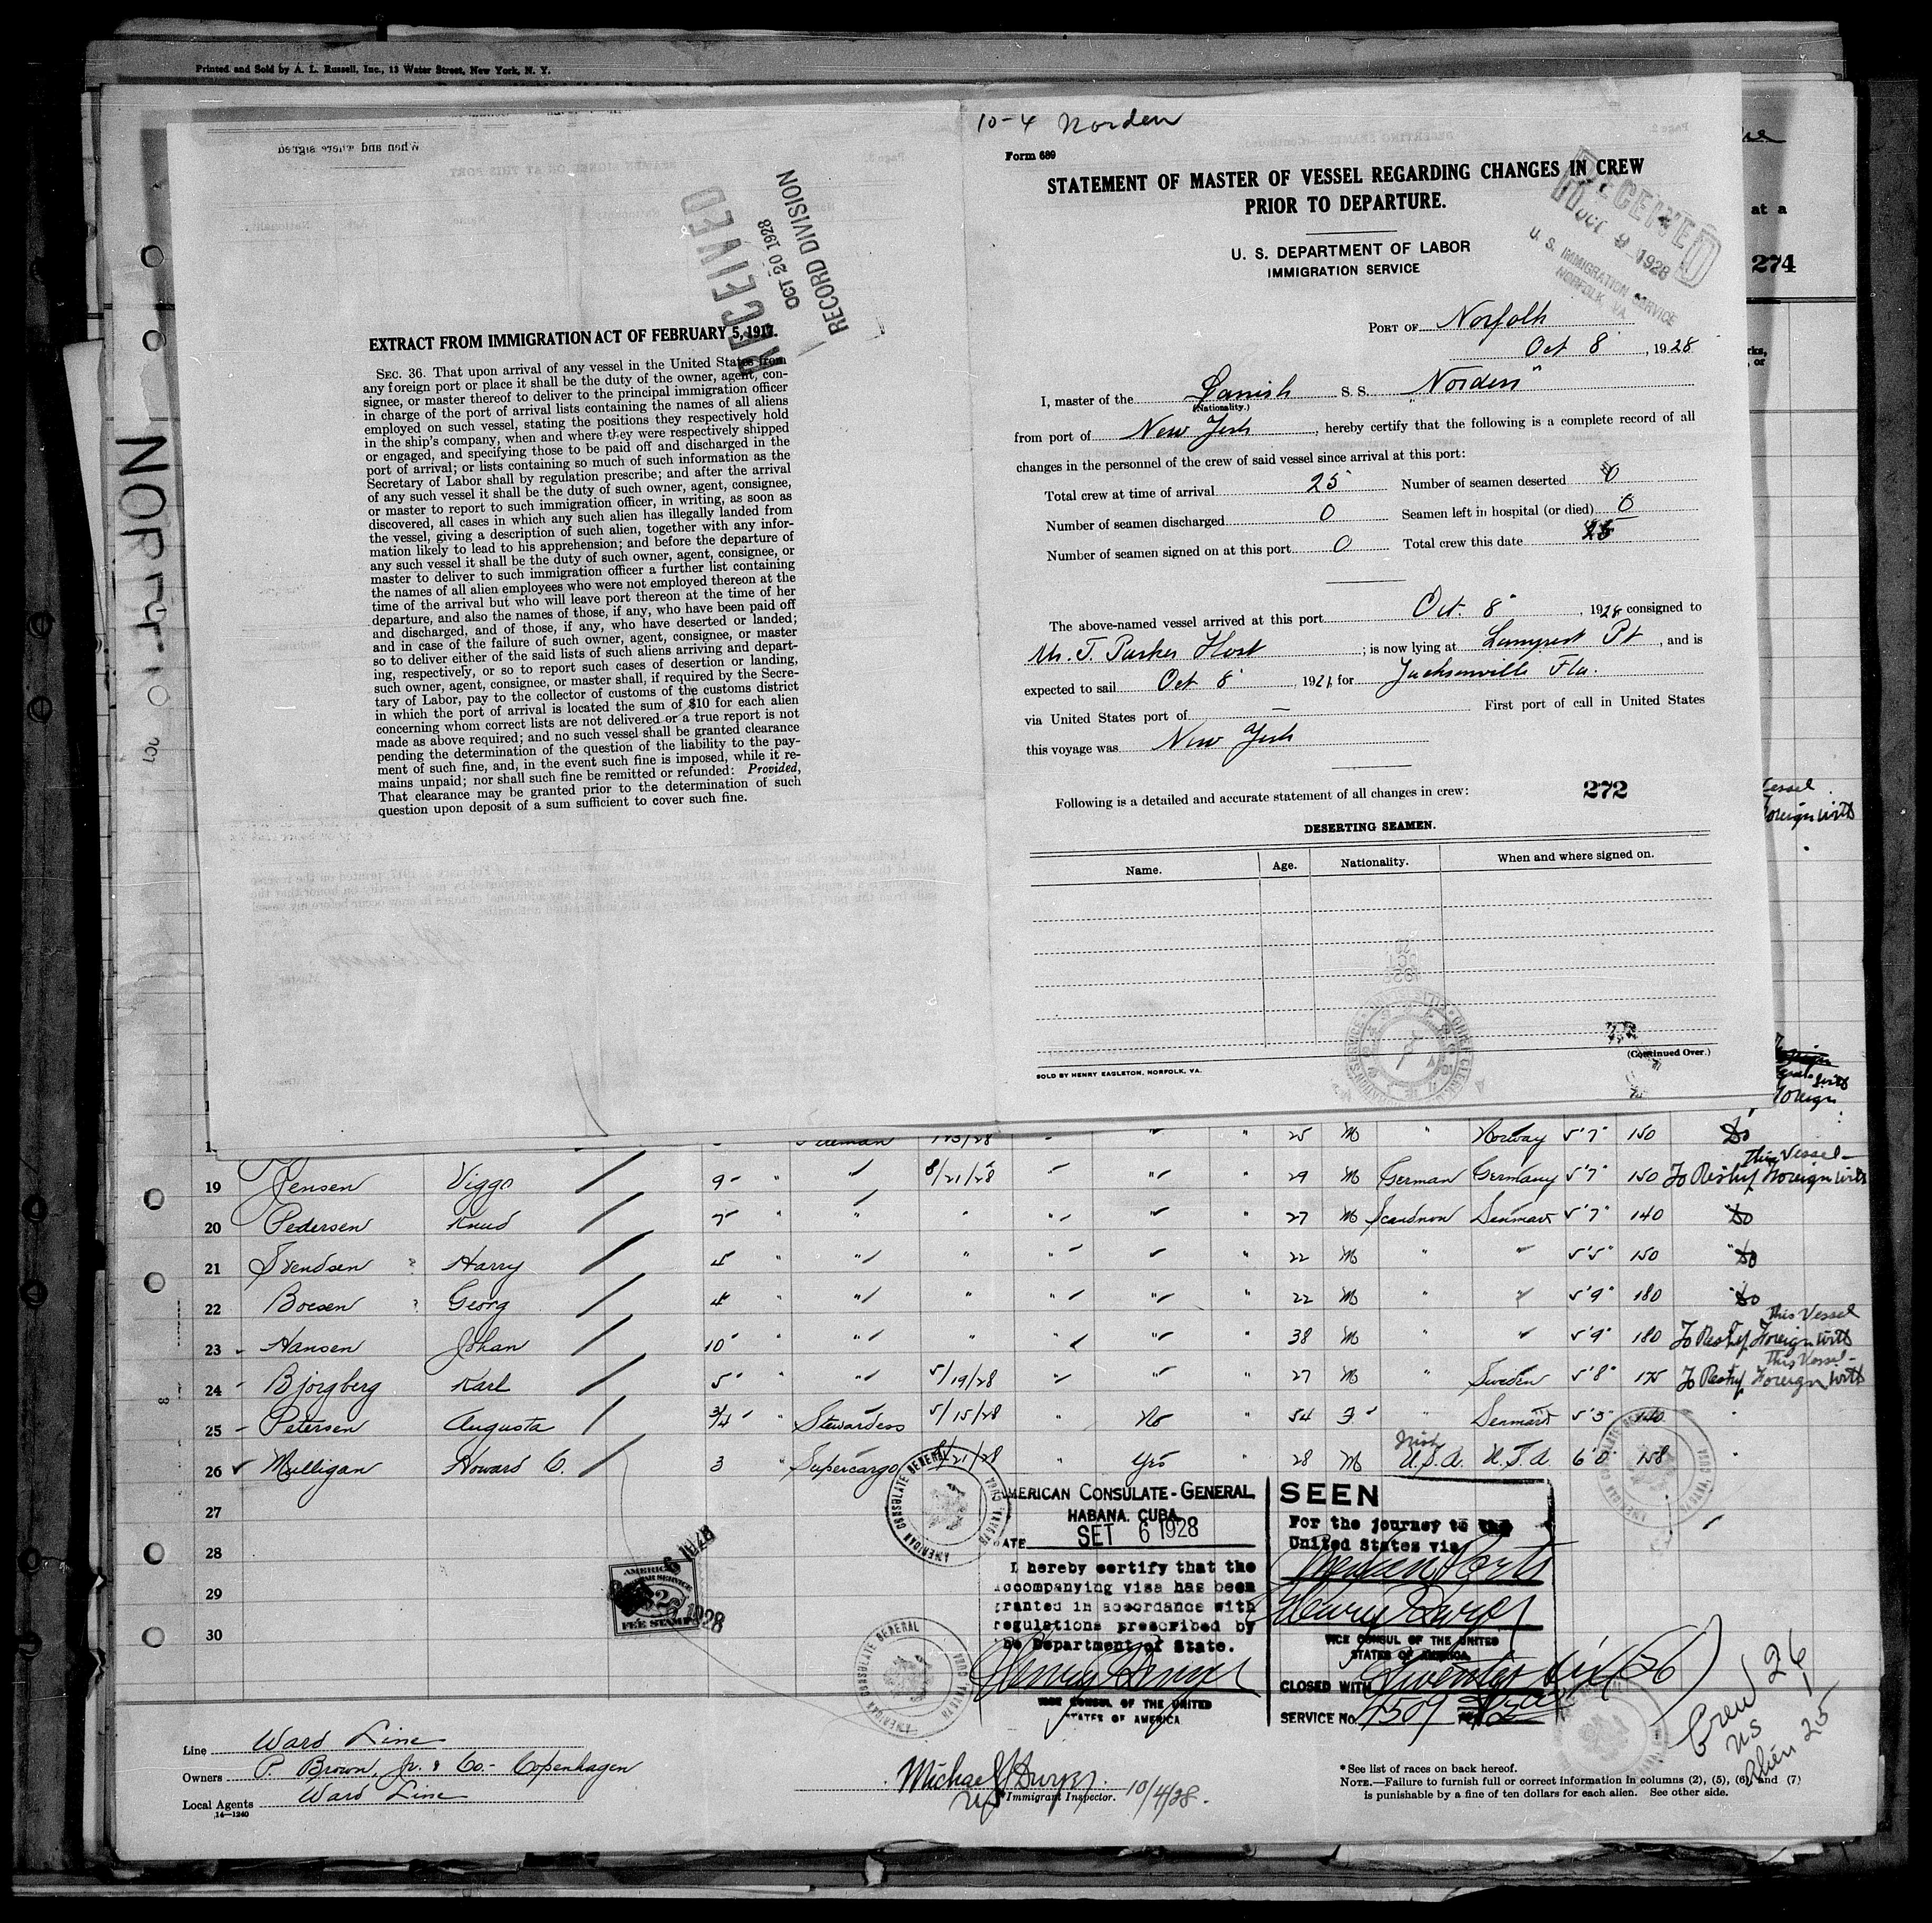 Printed and Sold by A. L. Russell, Inc., 13 Water Street, New York, N. Y.
at a
274
NORFOLK
When and where signed
RECEIVED
OCT 20 1928
RECORD DIVISION
EXTRACT FROM IMMIGRATION ACT OF FEBRUARY 5, 1917.
SEC. 36. That upon arrival of any vessel in the United States from
any foreign port or place it shall be the duty of the owner, agent, con-
signee, or master thereof to deliver to the principal immigration officer
in charge of the port of arrival lists containing the names of all aliens
employed on such vessel, stating the positions they respectively hold
in the ship's company, when and where they were respectively shipped
or engaged, and specifying those to be paid off and discharged in the
port of arrival; or lists containing so much of such information as the
Secretary of Labor shall by regulation prescribe; and after the arrival
of any such vessel it shall be the duty of such owner, agent, consignee,
or master to report to such immigration officer, in writing, as soon as
discovered, all cases in which any such alien has illegally landed from
the vessel, giving a description of such alien, together with any infor-
mation likely to lead to his apprehension; and before the departure of
any such vessel it shall be the duty of such owner, agent, consignee, or
master to deliver to such immigration officer a further list containing
the names of all alien employees who were not employed thereon at the
time of the arrival but who will leave port thereon at the time of her
departure, and also the names of those, if any, who have been paid off
and discharged, and of those, if any, who have deserted or landed;
and in case of the failure of such owner, agent, consignee, or master
so to deliver either of the said lists of such aliens arriving and depart-
ing, respectively, or so to report such cases of desertion or landing,
such owner, agent, consignee, or master shall, if required by the Secre-
tary of Labor, pay to the collector of customs of the customs district
in which the port of arrival is located the sum of $10 for each alien
concerning whom correct lists are not delivered or a true report is not
made as above required; and no such vessel shall be granted clearance
pending the determination of the question of the liability to the pay-
ment of such fine, and, in the event such fine is imposed, while it re-
mains unpaid; nor shall such fine be remitted or refunded: Provided,
That clearance may be granted prior to the determination of such
question upon deposit of a sum sufficient to cover such fine.
10-4 Norden
Form 689
STATEMENT OF MASTER OF VESSEL REGARDING CHANGES IN CREW
PRIOR TO DEPARTURE.
U. S. DEPARTMENT OF LABOR
IMMIGRATION SERVICE
RECEIVED
OCT 9 1928
U. S. IMMIGRATION SERVICE
NORFOLK, VA.
PORT OF Norfolk
Oct 8, 1928
I, master of the Danish S. S. "Norden"
(Nationality.)
from port of New York, hereby certify that the following is a complete record of all
changes in the personnel of the crew of said vessel since arrival at this port:
Total crew at time of arrival 25 Number of seamen deserted 0
Number of seamen discharged 0 Seamen left in hospital (or died) 0
Number of seamen signed on at this port 0 Total crew this date 25
The above-named vessel arrived at this port Oct. 8, 1928 consigned to
Mr. T Parker Host; is now lying at Lamperts Pt, and is
expected to sail Oct 8, 1928 for Jacksonville Fla.
via United States port of — First port of call in United States
this voyage was New York
Following is a detailed and accurate statement of all changes in crew: 272
DESERTING SEAMEN.
Name. Age. Nationality. When and where signed on.
(Continued Over.)
SOLD BY HENRY EAGLETON, NORFOLK, VA.
Vessel
Foreign with
Foreign
Fireman " " " 25 M " Norway 5'7" 150 Do
19 Jensen Viggo 9 " " 8/21/28 " " " 29 M German Germany 5'7" 150 To Reship Foreign with This Vessel
20 Pedersen Knud 7 " " " " " " 27 M Scandnvn Denmark 5'7" 140 Do
21 Svendsen Harry 4 " " " " " " 22 M " " 5'5" 150 Do
22 Boesen Georg 4 " " " " " " 22 M " " 5'9" 180 Do
23 Hansen Johan 10 " " " " " " 38 M " " 5'9" 180 To Reship Foreign with This Vessel
24 Bjorgberg Karl 5 " " 5/19/28 " " " 27 M " Sweden 5'8" 175 To Reship Foreign with This Vessel
25 Petersen Augusta 3/4 " Stewardess 5/15/28 " No " 54 F " Denmark 5'3" 140 "
26 Mulligan Howard C. 3 " Supercargo /21/28 " Yes " 28 M Irish U.S.A. U.S.A. 6'0 158 "
27
28
29
30
AMERICAN CONSULATE GENERAL HABANA, CUBA
AMERICAN CONSULATE-GENERAL
HABANA. CUBA.
DATE SET 6 1928
I hereby certify that the
accompanying visa has been
granted in accordance with
regulations prescribed by
the Department of State.
VICE CONSUL OF THE UNITED
STATES OF AMERICA
SEEN
For the journey to the
United States via
VICE CONSUL OF THE UNITED
STATES OF AMERICA.
CLOSED WITH Twenty six (26)
SERVICE No. 4509
AMERICAN
CONSULAR SERVICE
$2
FEE STAMP
1928
AMERICAN CONSULATE GENERAL HABANA, CUBA
Crew 26
US 1
Alien 25
Line Ward Line
Owners P. Brown, Jr. & Co. - Copenhagen
Local Agents Ward Line
14-1240
Michael J Dwyer
Immigrant Inspector. 10/4/28.
* See list of races on back hereof.
NOTE.—Failure to furnish full or correct information in columns (2), (5), (6), and (7)
is punishable by a fine of ten dollars for each alien. See other side.